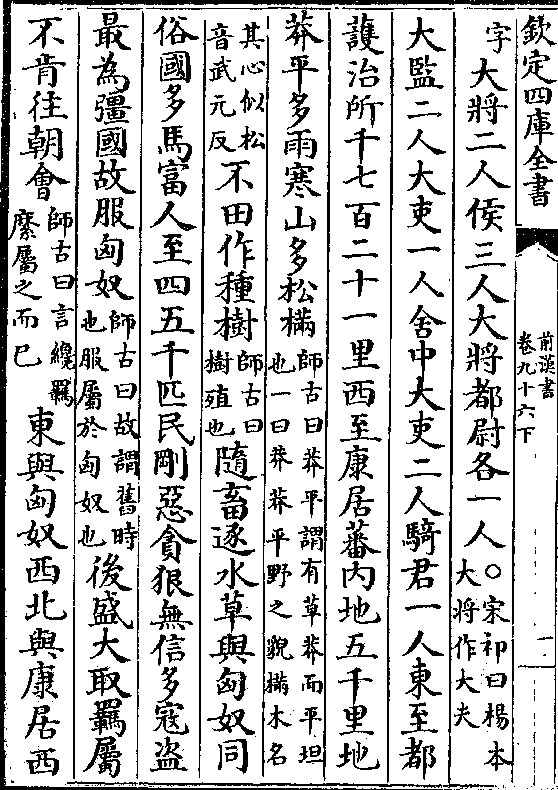 欽定四庫全書
前漢書
卷九十六下
字大將二人侯三人大將都尉各一人○宋祁曰楊本大將作大夫
大監二人大吏一人舍中大吏二人騎君一人東至都
䕶治所千七百二十一里西至康居蕃內地五千里地
莽平多雨寒山多松樠師古曰莽平謂有草莽而平坦也一曰莽莽平野之貌樠木名
其心似松音武元反不田作種樹師古曰樹殖也隨畜逐水草與匈奴同
俗國多馬富人至四五千匹民剛惡貪狠無信多寇盜
最為彊國故服匈奴師古曰故謂舊時也服屬於匈奴也後盛大取羈屬
不肯往朝會師古曰言纔羈縻屬之而已東與匈奴西北與康居西